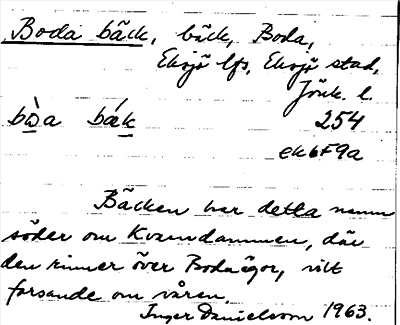 Boda bäck, bäck, Boda,
Eksjö lfs, Eksjö stad,
Jönk. l.
bòa bák 254
ek 6F9a
Bäcken har detta namn
söder om Kvarndammen, där
den rinner över Boda ägor, vilt
forsande om våren.
Inger Danielsson 1963.